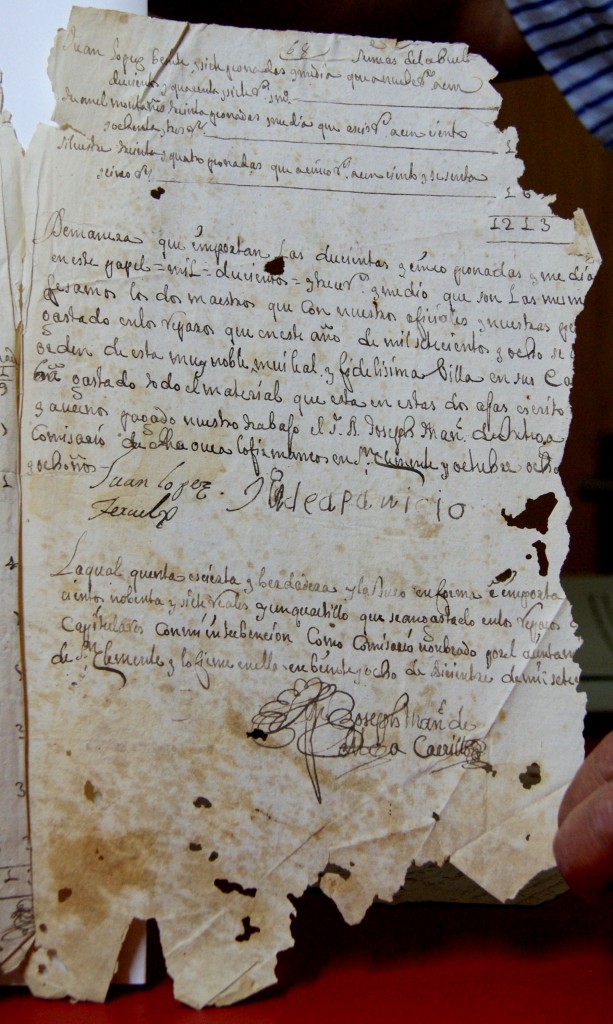 68 sumas del abuel
Juan lopez beinte y siete peonadas y media que a nuebe rs. acen
ducientos y quarenta y siete rs. mo.
Manuel montañes treinta peonadas y media que a seis rs. acen ciento
y ochenta y tres rs. 1
treinta y quatro peonadas que a cinco rs. acen ciento y sesenta
y cinco rs. 16
1213
Demanera que importan Las ducientas y cinco peonadas y me dia
en este papel = mil = ducientos = y trece rs. y medio que son Las mism
fesamos los dos maestros que con nuestros ofiçiales y nuestras
gastado en los reparos que en este año de mil setecientos y ocho se
orden de esta muy noble, mui leal, y fidelissima Villa en sus Ca
gastado todo el material que esta en estas dos ojas escrito
y auernos pagado nuestro trabajo el Sr. D. Joseph Man. de
Comisario de dha obra lo firmamos en Sn. Clemente y octubre ocho
y ocho años
Juan Lopez
Teruel
Laqual quenta es cierta y berdadera y la Juro en forma e importa
cientos nobenta y siete reales y un quartillo que se an gastado en los reparos
Capitulares con mi interbencion Como Comisario nombrado por el aiuntam
de Sn. Clemente y lo firme en ella en beinte y ocho de diciembre de mil sete
Joseph Man. de
Carrillo